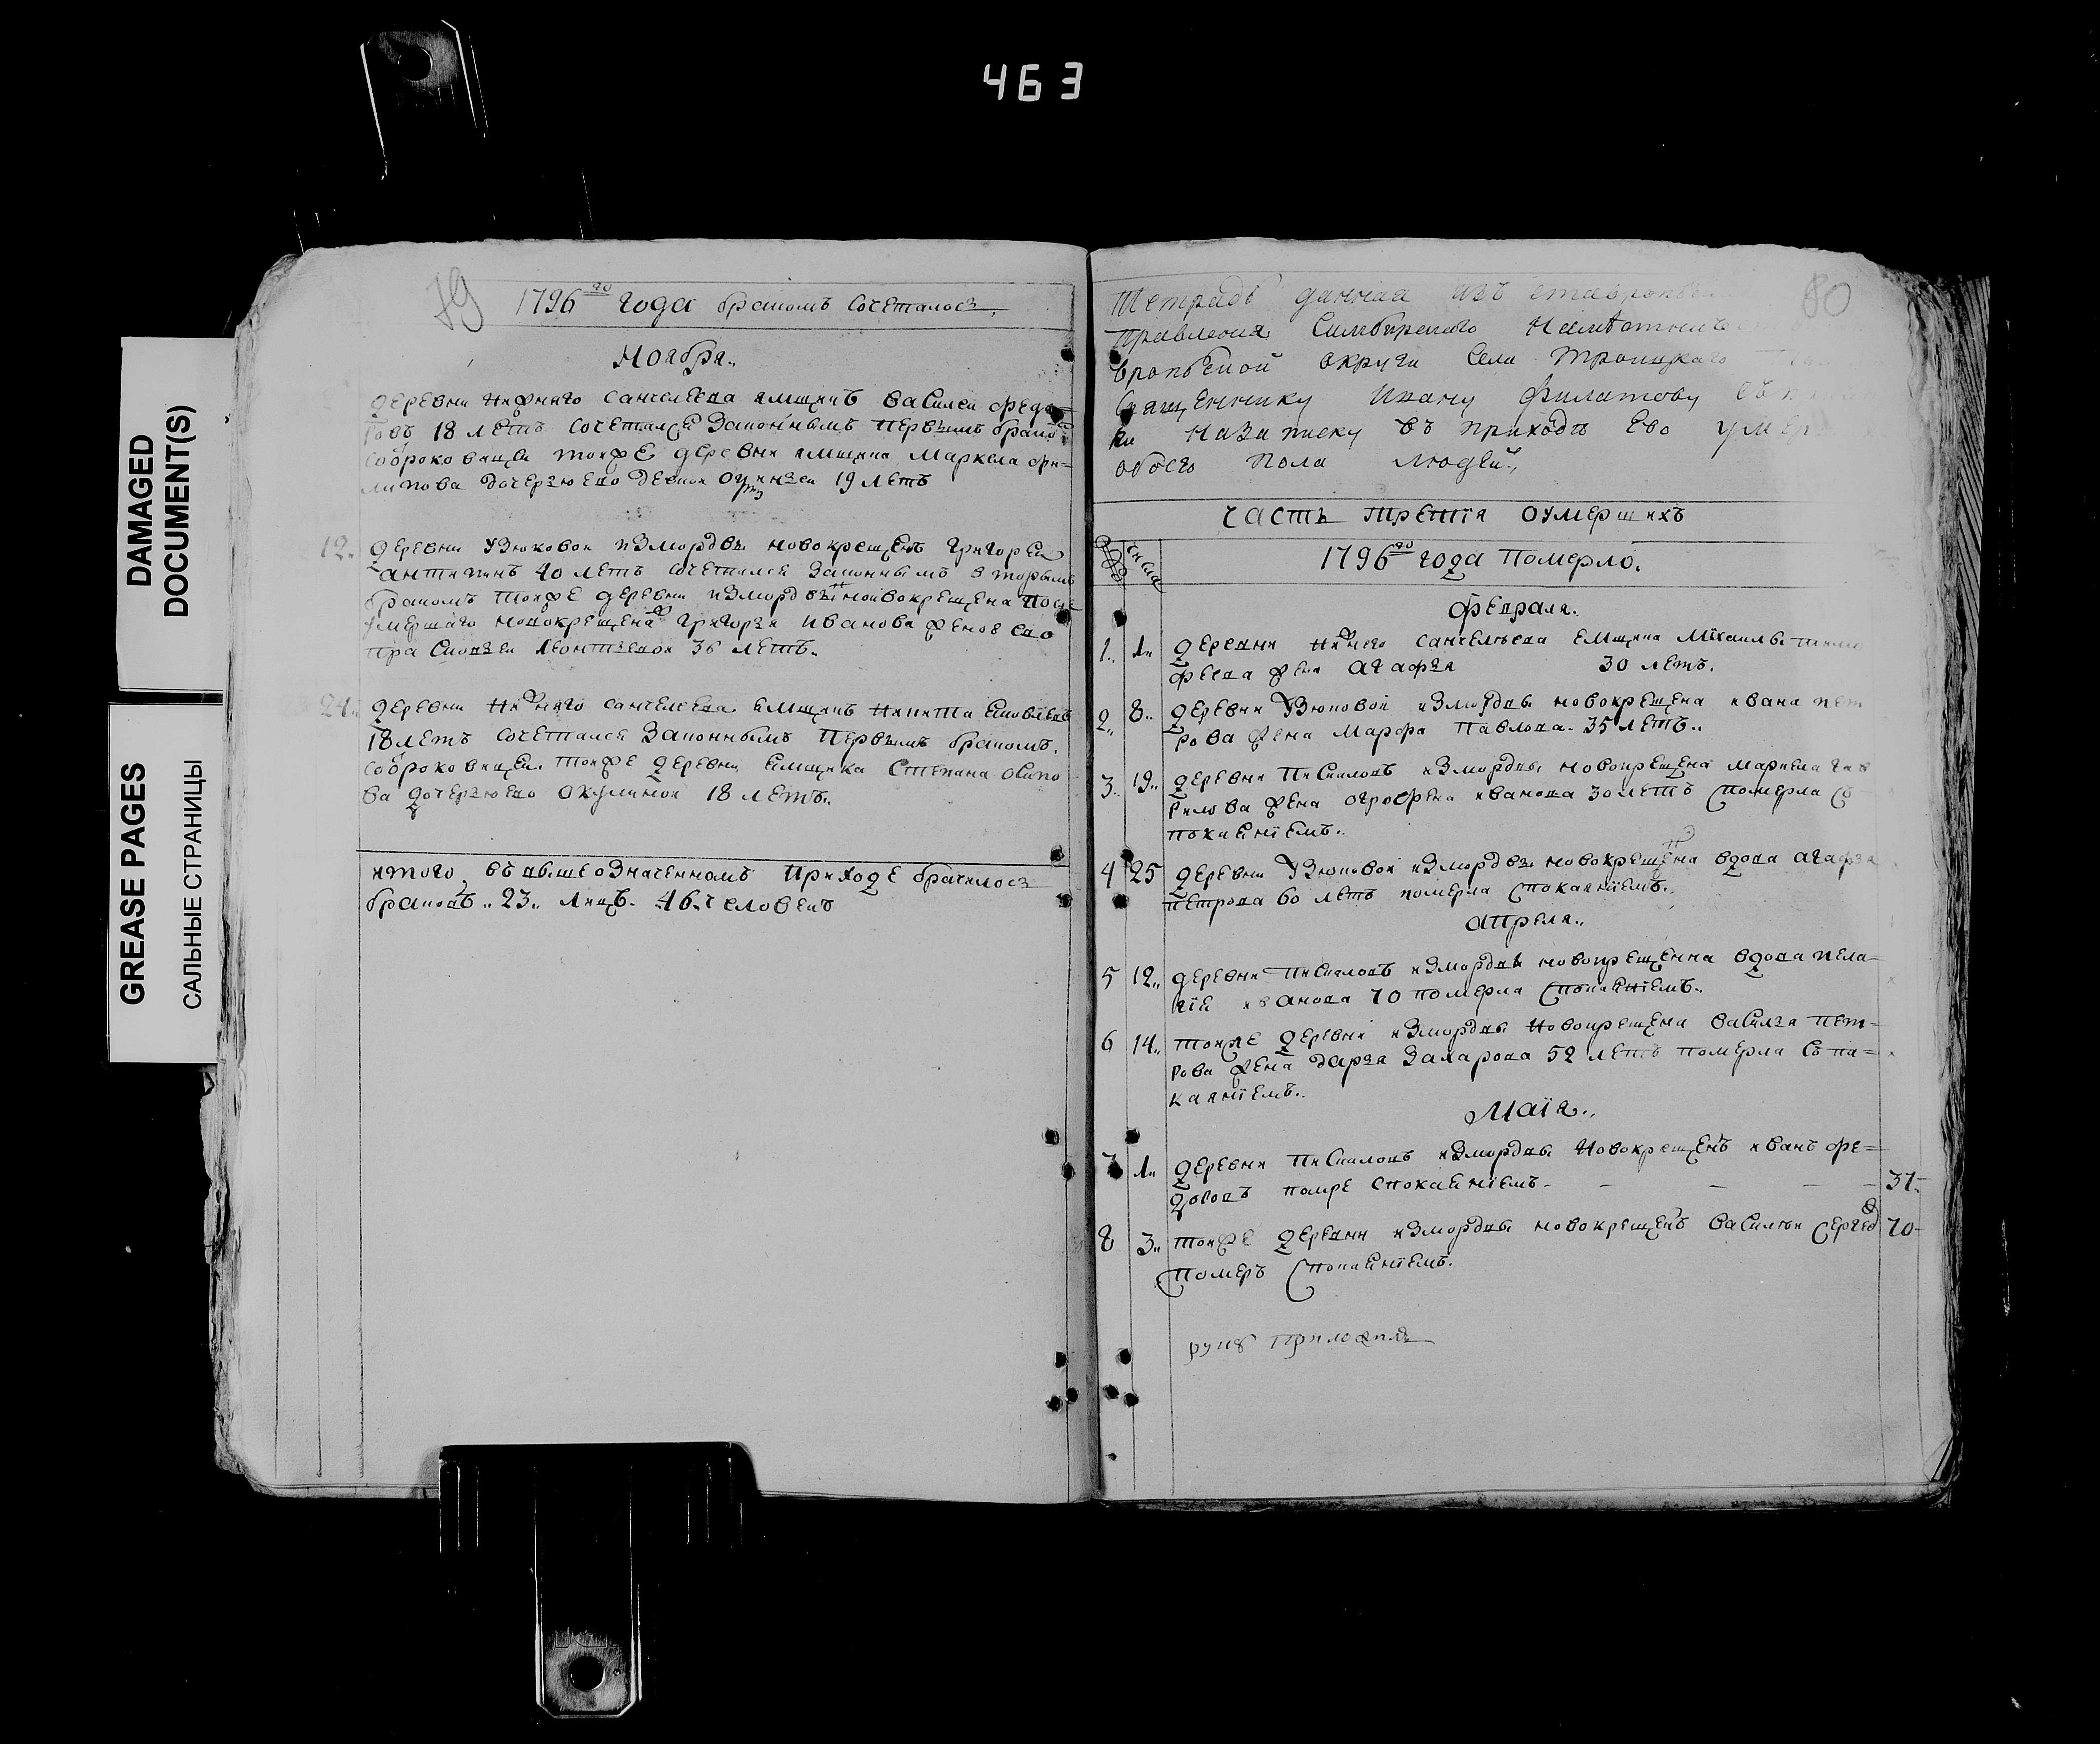 463
DAMAGED
DOCUMENT(S)
GREASE PAGES
САЛЬНЫЕ СТРАНИЦЫ
79
1796го года браком сочеталось
Ноября..
деревни нижнего санчелеева ямщикъ василеи федо
товъ 18 летъ сочетался законнымъ первымъ браком
соброковицеи тоиже деревни ямщика маркела фи=
липова дочерью ево девкои 19 летъ
12. деревни Узюковои измордвы новокрещенъ григореи
антипинъ 40 летъ сочетался законнымъ вторымъ
бракомъ тоиже деревни измордвы новокрещена после
умершаго новокрещена григорья иванова женою ево
прасковьеи леонтьевои 36 летъ.
24.. деревни нижняго санчелеева ямщикъ никита яковлевъ
18 летъ сочетался законнымъ первымъ бракомъ.
соброковицеи тоиже деревни ямщика степана осипо
ва дочерью ево окулинои 18 летъ..
итого въ вышеозначенномъ приходе брачилось
браковъ.. 23.. лицъ. 46. человекъ
80
Тетрадь данная изъ
правления Симбирскаго
вропольской округи села троицкаго
священнику Ивану Филатову
на записку въ приходъ ево
обоего пола людей.,
часть третiя оумершихъ
числа
1796го года померло.
февраля..
1.. 1.. деревни нижнего санчелеева ямщика михаилы тимо
феева жена агафья 30 летъ.
2.. 8.. деревни Узюковой измордвы новокрещена ивана пет
рова жена марфа павлова. 35 летъ..
3.. 19.. деревни пискаловъ измордвы новокрещена маркела гав
рилова жена огрофена иванова 30 летъ померла съ
покаянiемъ..
4 25 деревни Узюковой измордвы новокрещена вдова агафья
петрова 60 летъ померла спокаянiемъ.,
апреля..
5 12.. деревни пискаловъ измордвы новокрещенна вдова пела=
гiя иванова 70 померла спокаянiемъ..
6 14.. тоиже деревни измордвы новокрещена василья пет=
рова жена дарья захарова 52 летъ померла съ па=
каянiемъ..
маiя..
7 1.. деревни пискаловъ измордвы новокрещенъ иванъ фе=
доровъ помре спокаянiемъ - - - - 37-
8 3.. тоиже деревни измордвы новокрещенъ василеи сергеев 70-
померъ спокаянiемъ.
руку приложилъ